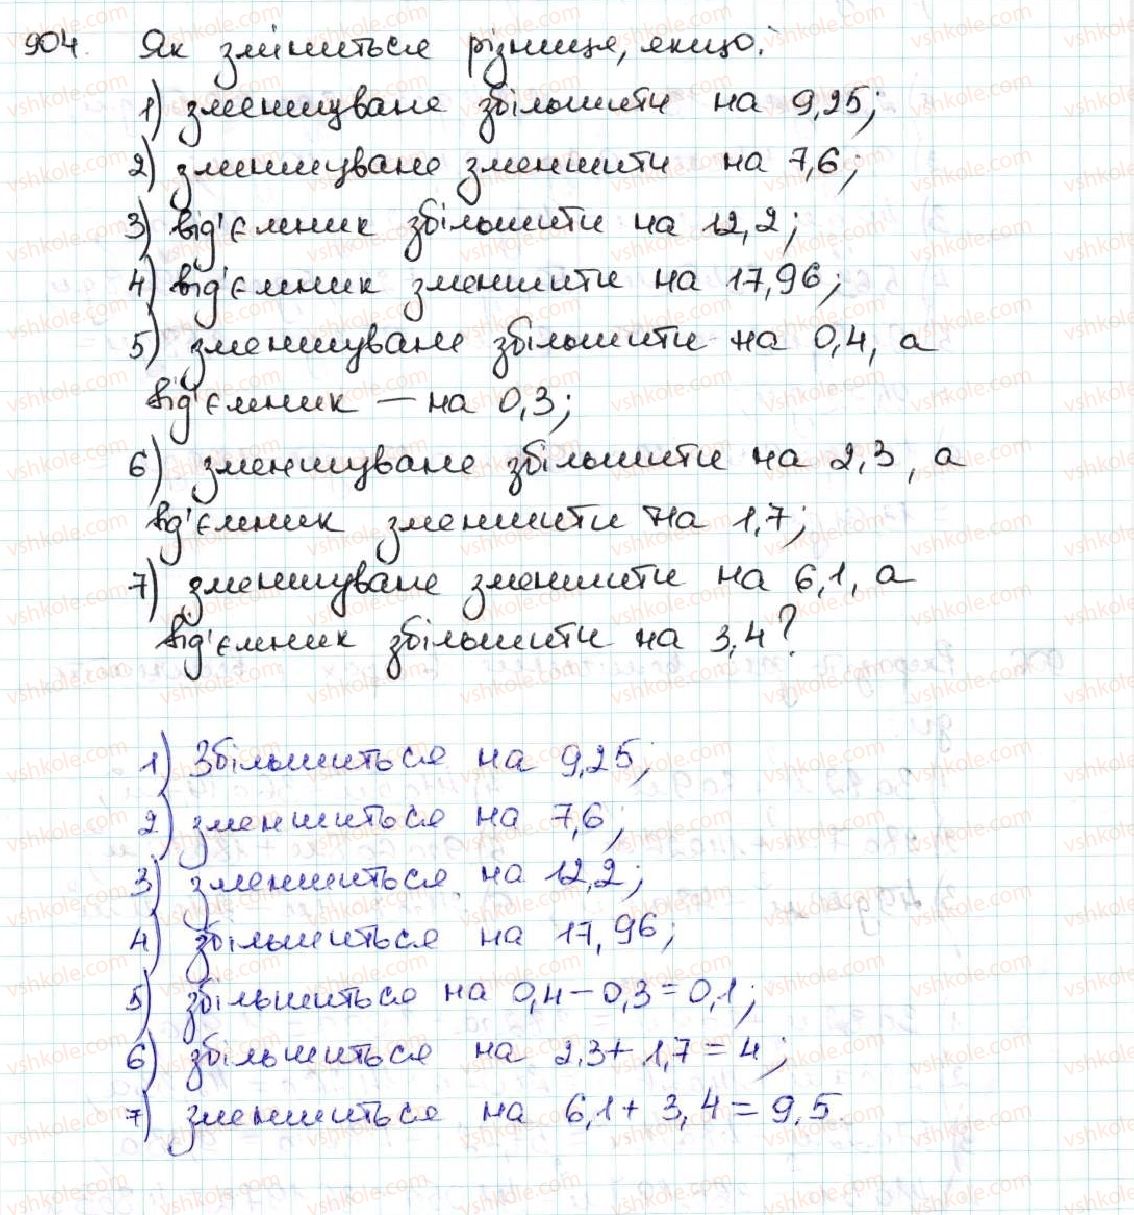 904. Як зміниться різниця, якщо:
1) зменшуване збільшити на 9,25;
2) зменшуване зменшити на 7,6;
3) від'ємник збільшити на 12,2;
4) від'ємник зменшити на 17,96;
5) зменшуване збільшити на 0,4, а
від'ємник — на 0,3;
6) зменшуване збільшити на 2,3, а
від'ємник зменшити на 1,7;
7) зменшуване зменшити на 6,1, а
від'ємник збільшити на 3,4?
1) Збільшиться на 9,25;
2) зменшиться на 7,6;
3) зменшиться на 12,2;
4) збільшиться на 17,96;
5) збільшиться на 0,4 - 0,3 = 0,1;
6) збільшиться на 2,3 + 1,7 = 4;
7) зменшиться на 6,1 + 3,4 = 9,5.